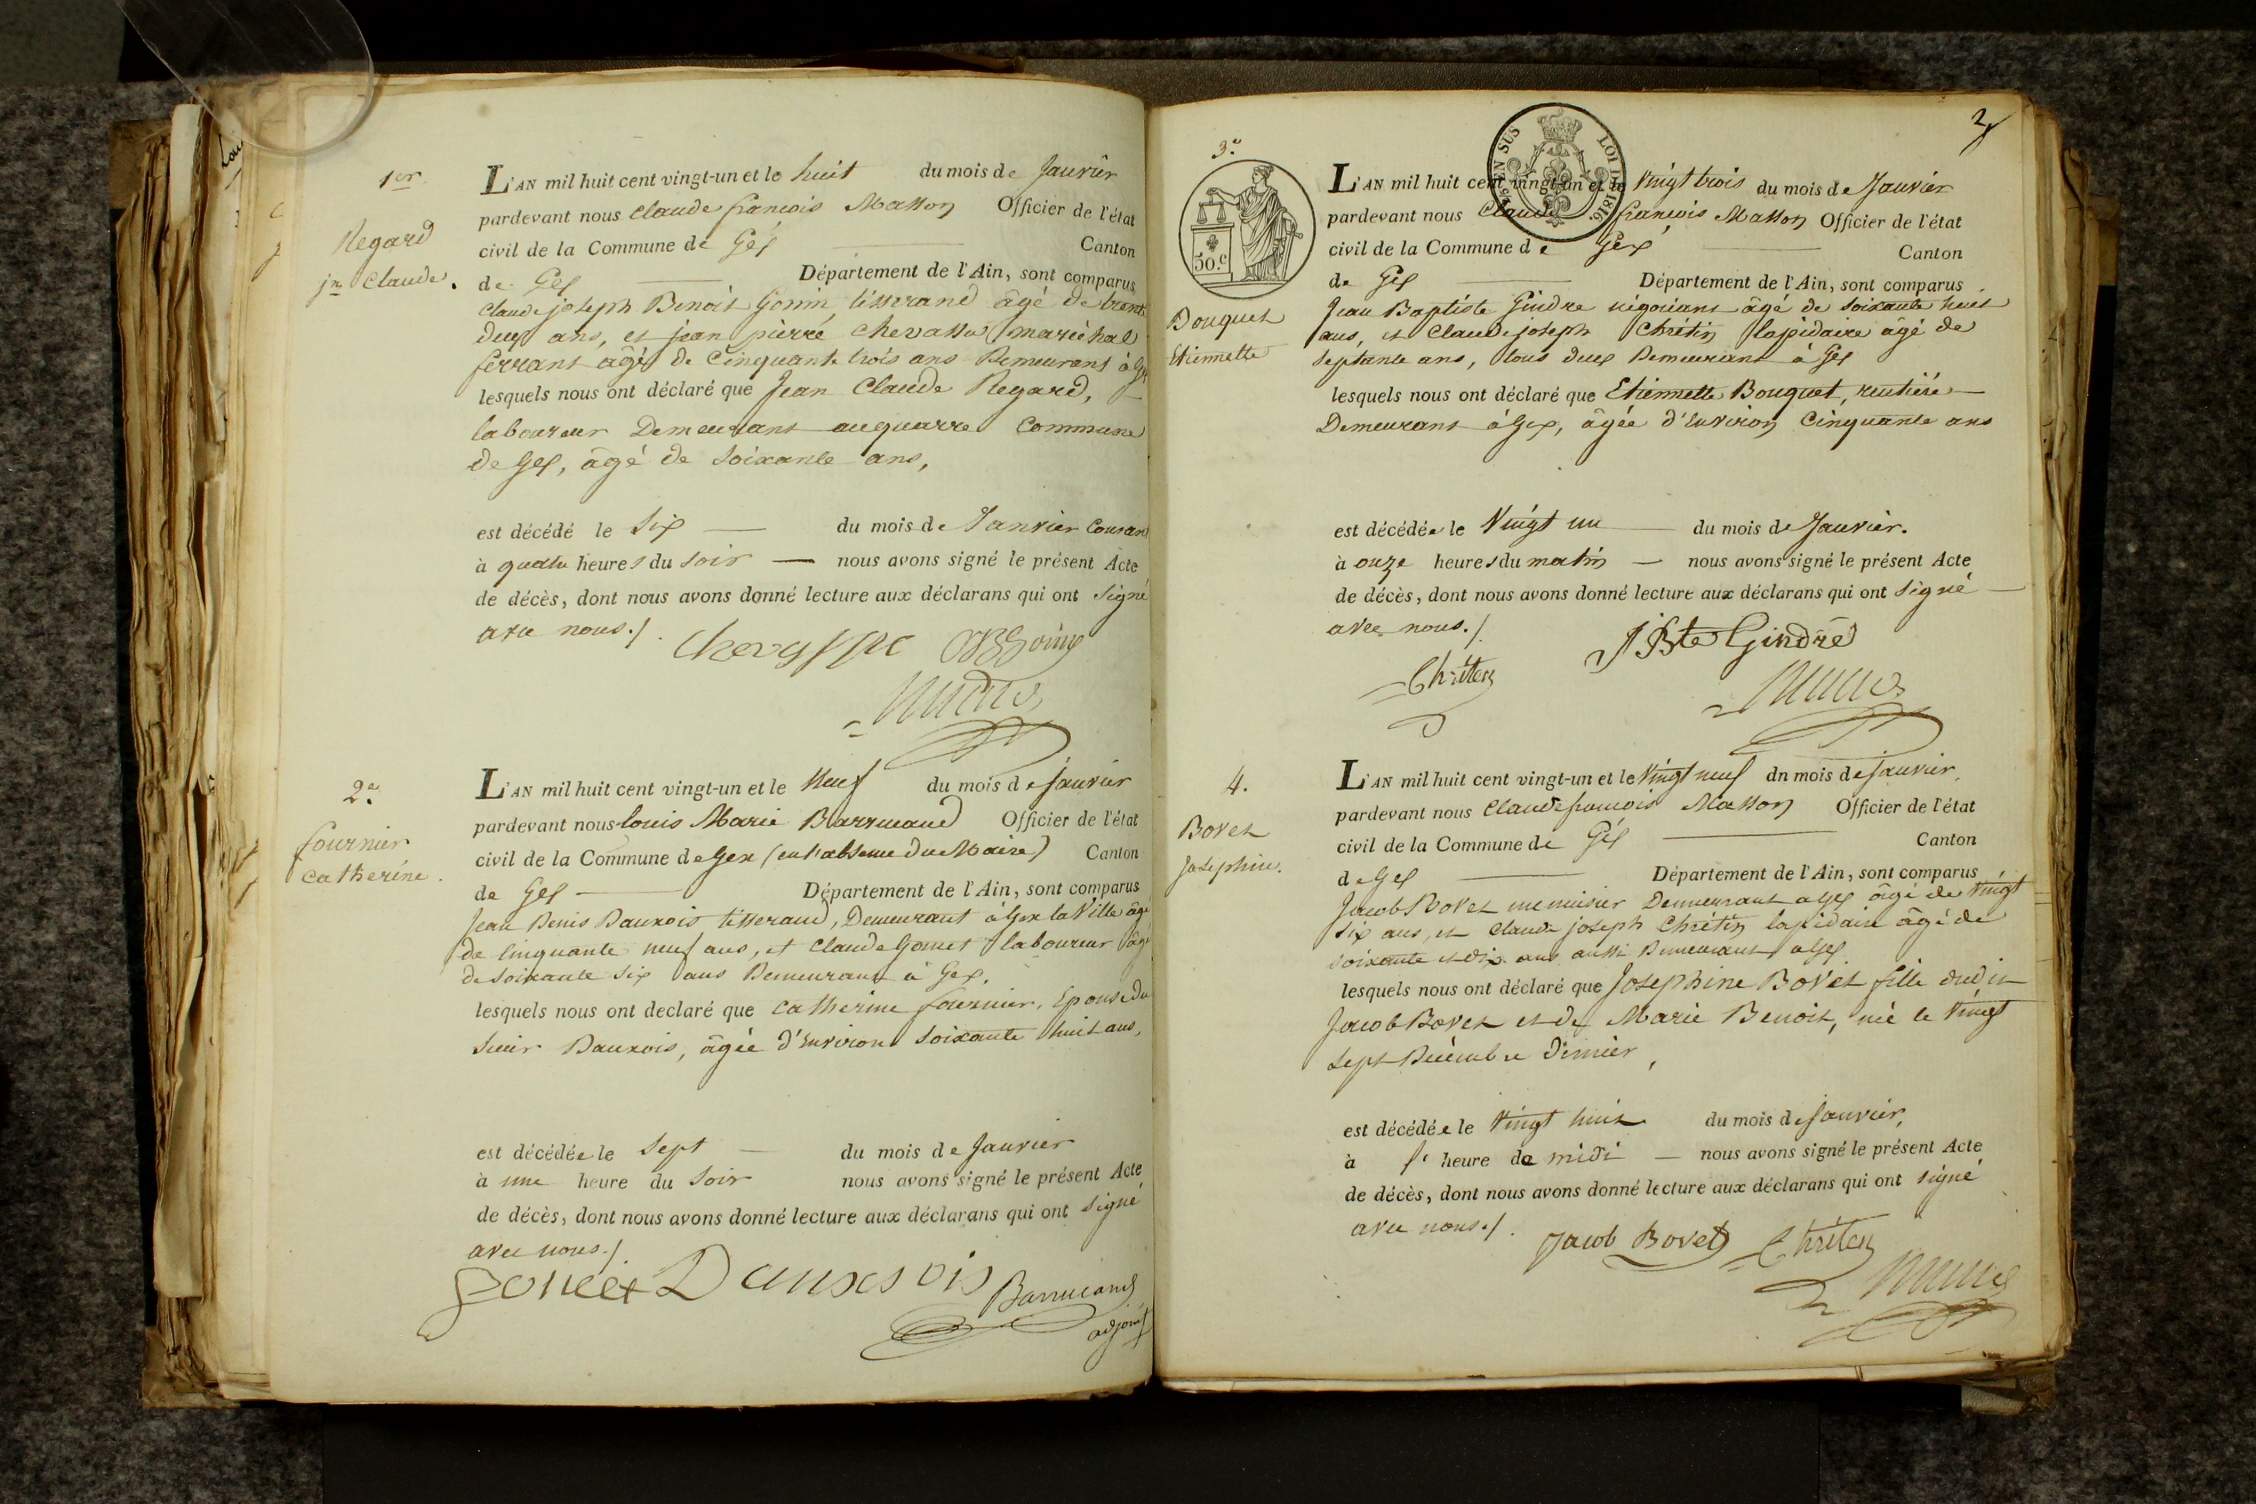 1er
Regard
jn Claude.
L'AN mil huit cent vingt-un et le huit du mois de Janvier
pardevant nous Claude françois Masson Officier de l'état
civil de la Commune de Gex Canton
de Gex Département de l'Ain, sont comparus
Claude joseph Benoit Gonin, tisserand âgé de trente
deux ans, et jean pierre Chevassu maréchal
ferrant âgé de Cinquante trois ans Demeurant à Gex
lesquels nous ont déclaré que Jean Claude Regard,
laboureur Demeurant Commune
de Gex, âgé de Soixante ans,
est décédé le Six du mois de Janvier Courant
à quatre heures du Soir nous avons signé le présent Acte
de décès, dont nous avons donné lecture aux déclarans qui ont Signé
avec nous./.
2e
fournier
Catherine.
L'AN mil huit cent vingt-un et le Neuf du mois de Janvier
pardevant nous louis Marie Barrucand Officier de l'état
civil de la Commune de Gex (en l'absence du Maire) Canton
de Gex Département de l'Ain, sont comparus
Jean Denis Dauxois tisserand, Demeurant à Gex la Ville âgé
de Cinquante neuf ans, et Claude Gonet laboureur âgé
de Soixante Six ans Demeurant à Gex.
lesquels nous ont declaré que Catherine fournier, Epouse du
Sieur Dauxois, âgée d'Environ Soixante huit ans,
est décédée le Sept du mois de Janvier
à une heure du Soir nous avons signé le présent Acte
de décès, dont nous avons donné lecture aux déclarans qui ont Signé
avec nous./
Gonet Dauxois Barrucand
adjoint
2
3e
50.c
LOI DE 1816.
Bouquet
Etiennette
L'AN mil huit cent vingt-un et le Vingt trois du mois de Janvier
pardevant nous Claude françois Masson Officier de l'état
civil de la Commune de Gex Canton
de Gex Département de l'Ain, sont comparus
Jean Baptiste Gindre négociant âgé de Soixante huit
ans, et Claude joseph Chrétin lapidaire âgé de
Septante ans, tous deux Demeurant à Gex
lesquels nous ont déclaré que Etiennette Bouquet, rentière
Demeurant à Gex, âgée d'Environ Cinquante ans
est décédée le Vingt un du mois de Janvier.
à onze heures du matin nous avons signé le présent Acte
de décès, dont nous avons donné lecture aux déclarans qui ont Signé
avec nous./.
JBte Gindre
Chrétin
4.
Bovet
Josephine.
L'AN mil huit cent vingt-un et le Vingt neuf dn mois de Janvier,
pardevant nous Claude françois Masson Officier de l'état
civil de la Commune de Gex Canton
de Gex Département de l'Ain, sont comparus
Jacob Bovet menuisier Demeurant à Gex âgé de Vingt
Six ans, et Claude joseph Chrétin lapidaire âgé de
Soixante et dix ans aussi Demeurant à Gex
lesquels nous ont déclaré que Josephine Bovet fille dudit
Jacob Bovet et de Marie Benoit, née le Vingt
Sept Décembre Dernier,
est décédée le Vingt huit du mois de Janvier,
à heure de midi nous avons signé le présent Acte
de décès, dont nous avons donné lecture aux déclarans qui ont signé
avec nous./.
Jacob Bovet Chrétin